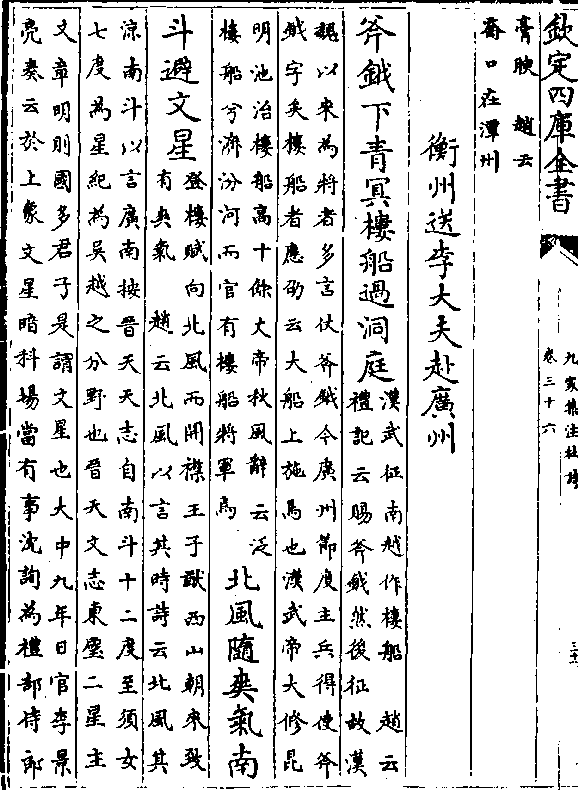 欽定四庫全書
九家集注杜詩
卷三十六
膏腴 趙云
喬口在潭州
衡州送李大夫赴廣州
斧鉞下青冥樓船過洞庭
漢武征南越作樓船 趙云
禮記云賜斧鉞然後征故漢
魏以來為將者多言仗斧鉞今廣州節度主兵得使斧
鉞字矣樓船者應劭云大船上施馬也漢武帝大修昆
明池治樓船高十餘丈帝秋風辭云泛
樓船兮濟汾河而官有樓船將軍焉
北風隨爽氣南
斗避文星
登樓賦向北風而開襟王子猷西山朝來致
有爽氣 趙云北風以言其時詩云北風其
涼南斗以言廣南按晉天天志自南斗十二度至須女
七度為星紀為吳越之分野也晉天文志東壁二星主
文章明則國多君子是謂文星也大中九年日官李景
亮奏云於上象文星暗科場當有事沈詢為禮部侍郎